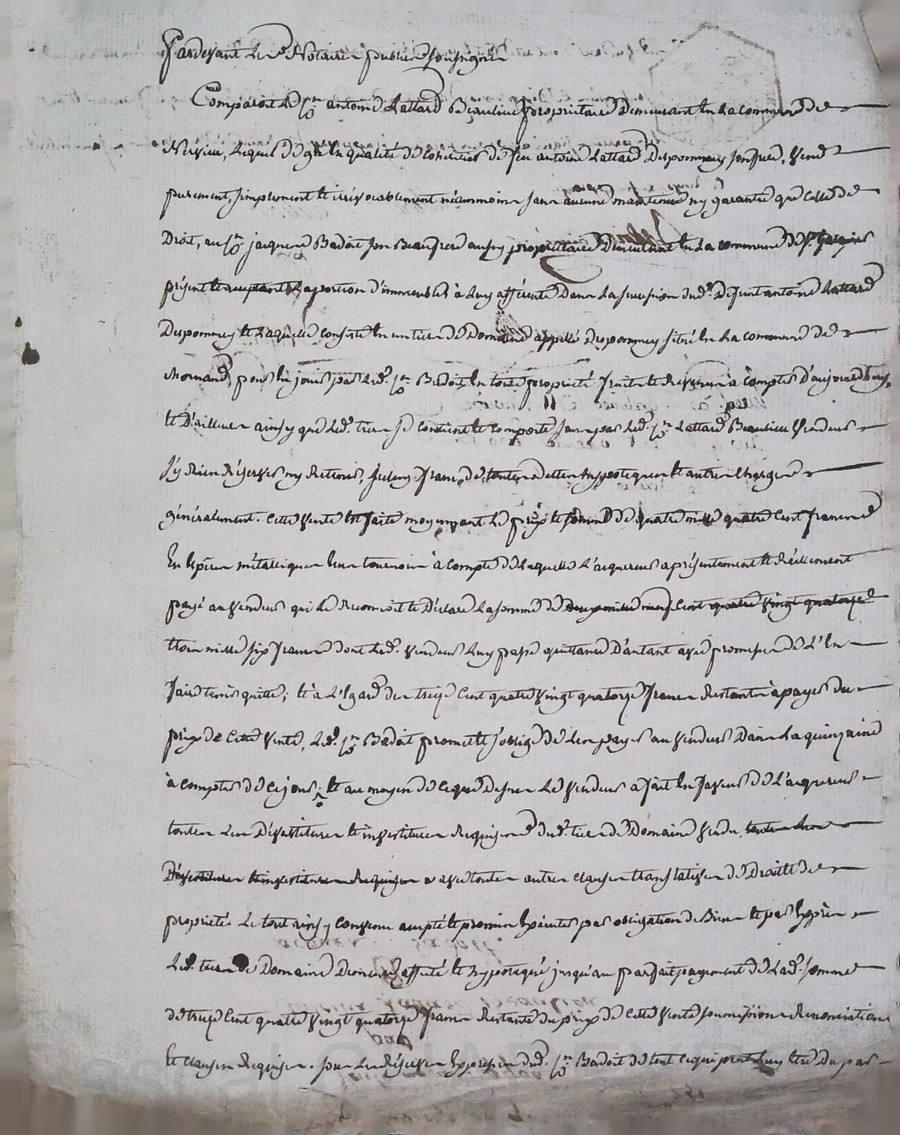 Pardevant Les Notaires publics soussignés
Comparoit le Sr antoine Lattard Beaulieu propriétaire Demeurant En La commune de
Lequel de gré En qualité de cohéritier de feu antoine Lattard Despomeys son frere, Vend
purement, simplement Et irrévocablement néanmoins sans aucune maintenue ny garantie que Celle de
Droit, au Sr jacques Badoit son Beaufrere aussy propriétaire Demeurant En La commune de St
présent Et acceptant La portion d'immeubles à Luy afférente Dans La succession dud. Défunt antoine Lattard
Despomeys Et Laquelle consiste En un tiers de Domaine appellé Despomeys situé En La commune de
Mornand, pour En jouir par Led. Sr Badoit En toute propriété fruits Et Revenus à Compter D'aujourd'huy,
Et D'ailleurs ainsy que Led. tiers se contient Et Comporte sans par Led. Sr Lattard Beaulieu Vendeur
s'y Rien Réserver ny Retenir, franc de toutes Dettes hypoteques Et autres Charges
généralement. Cette Vente Est faite moyennant Le prix Et somme de quatre mille quatre Cent francs
En Espèces métalliques à compte de Laquelle L'acquereur a présentement Et Réellement
payé au Vendeur qui Le Reconnoit Et Déclare La somme de Cent quatre Vingt quatorze
trois mille six francs dont Led. Vendeur Luy passe quittance D'autant avec promesse de L'En
faire tenir quitte; Et à L'Egard des treize Cent quatre Vingt quatorze francs Restants à payer du
prix de Cette Vente, Led. Sr Badoit promet Et s'oblige de Les payer au Vendeur Dans La quinzaine
à compter de Ce jour; Et au moyen de Ce que Dessus Le Vendeur a fait En faveur de L'acquereur
toutes Les Dévestitures Et investitures Requises dud. tiers de Domaine Vendu toutes Les
Dévestitures Et investitures Requises avec toutes autres clauses translatives de Droit Et de
propriété. Le tout ainsy Convenu accepté Et promis Exécuter par obligation de Biens Et par Exprès
Led. tiers de Domaine Demeure affecté Et hypotequé jusqu'au parfait payement de Lad. somme
de treize Cent quatre Vingt quatorze francs Restante du prix de Cette Vente soumissions Renonciations
Et clauses Requises. sous La Réserve Expresse dud. Sr Badoit de tout Ce qui peut Luy Etre Du par